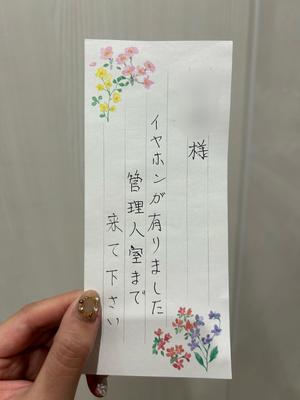 様
イヤホンが有りました
管理人室まで
来て下さい